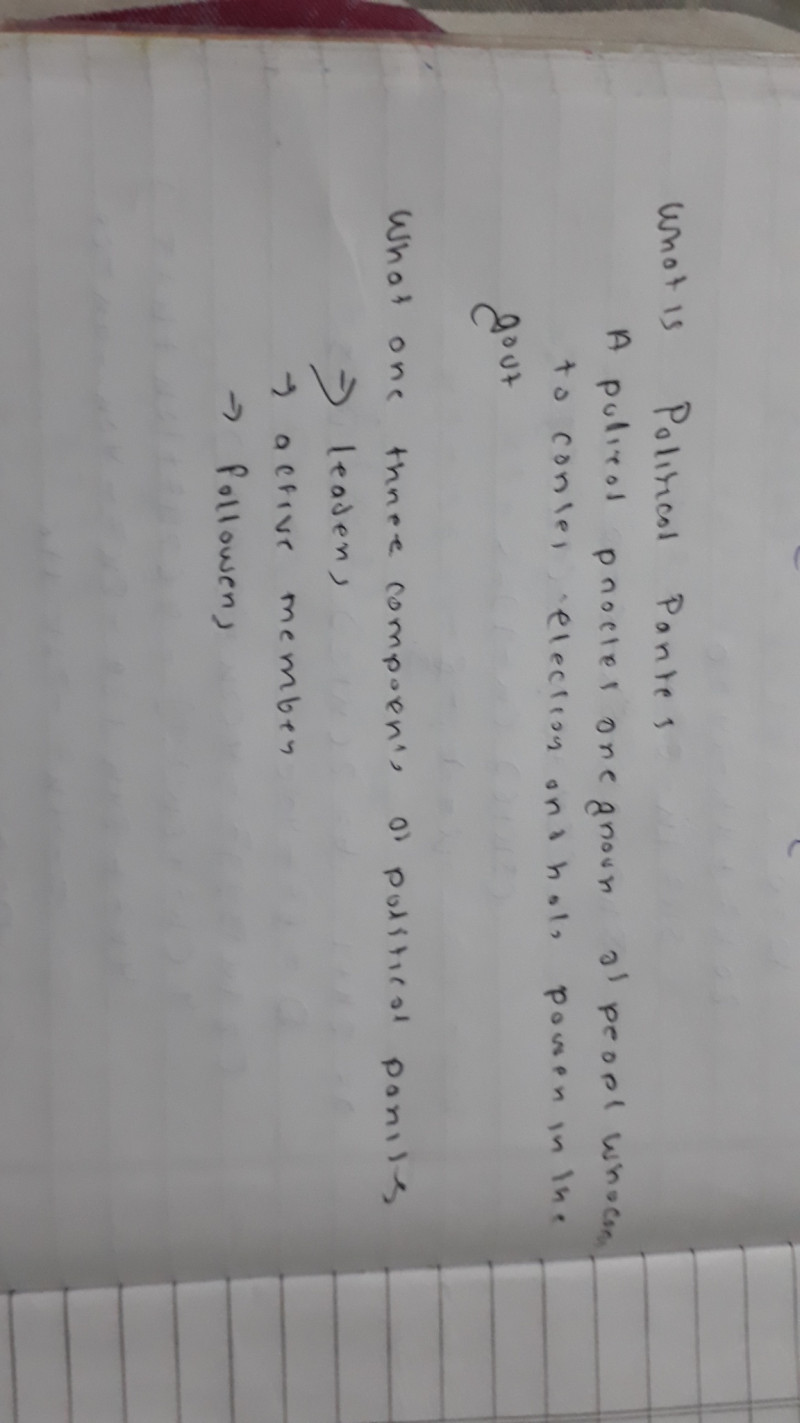 What is Political Parties
A political parties are group of people who come
to contest election and hold power in the
govt
What are three components of political parties
→ leaders
→ active member
→ followers